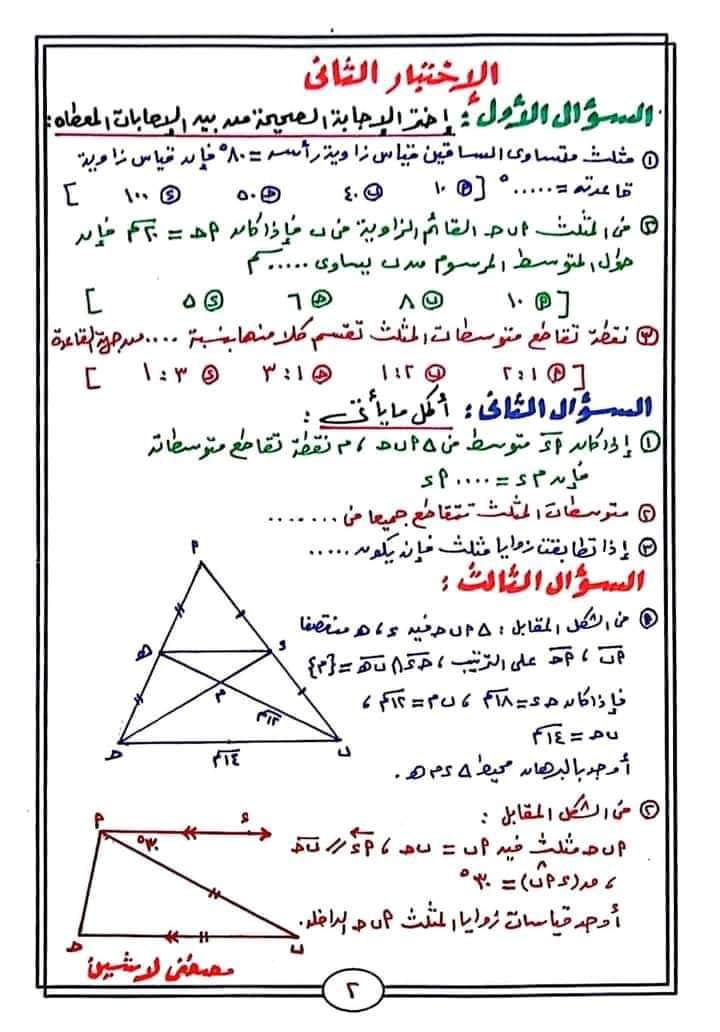 الاختبار الثانى
السؤال الأول: إختر الإجابة الصحيحة من بين الإجابات المعطاه:
١ مثلث متساوى الساقين قياس زاوية رأسه = ٨٠° فإن قياس زاوية
قاعدته = ..... ° [ P ١٠ ب ٤٠ ح ٥٠ ع ١٠٠ ]
٢ فى المثلث P ب ح القائم الزاوية فى ب فإذا كان P ح = ٢٠ سم فإن
طول المتوسط المرسوم من ب يساوى ..... سم
[ P ١٠ ب ٨ ح ٦ ع ٥ ]
٣ نقطة تقاطع متوسطات المثلث تقسم كلا منها بنسبة .... من جهة القاعدة
[ P ١ : ٢ ب ٢ : ١ ح ١ : ٣ ع ٣ : ١ ]
السؤال الثانى: أكمل ما يأتى :
١ إذا كان P ع متوسط فى Δ P ب ح ، م نقطة تقاطع متوسطاته
فإن م ع = .... P ع
٢ متوسطات المثلث تتقاطع جميعا فى .......
٣ إذا تطابقت زوايا مثلث فإن يكون .....
السؤال الثالث :
P
ه
ع
م
١٢ سم
ح
ب
١٤ سم
١ فى الشكل المقابل : Δ P ب ح فيه ع ، ه منتصفا
P ب ، P ح على الترتيب ، ح ع ∩ ب ه = {م}
فإذا كان ح ع = ١٨ سم ، ب م = ١٢ سم ،
ب ح = ١٤ سم
أوجد بالبرهان محيط Δ ع م ه .
٢ فى الشكل المقابل :
P ب ح مثلث فيه P ب = ب ح ، P ع // ب ح
، ق (ع P ب) = ٣٠°
أوجد قياسات زوايا المثلث P ب ح الداخلة .
P
ع
٣٠°
ح
ب
مصطفى لاشين
٢